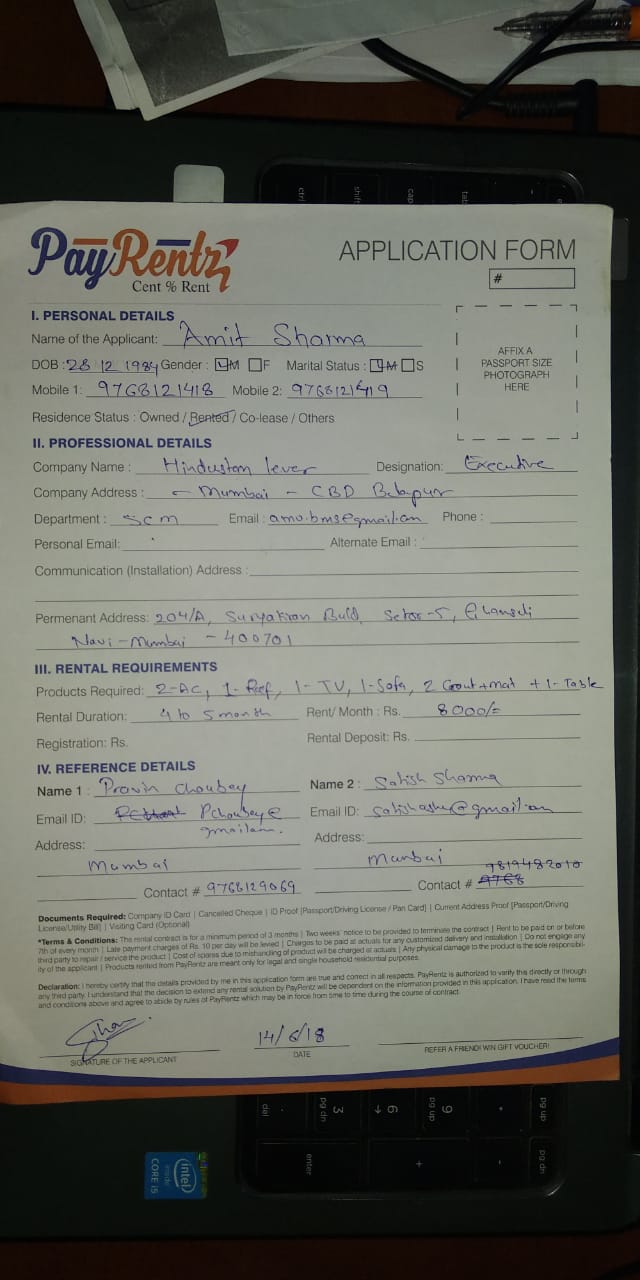 PayRentz
Cent % Rent
APPLICATION FORM
#
I. PERSONAL DETAILS
Name of the Applicant: Amit Sharma
DOB: 28 12 1984 Gender: M F Marital Status: M S
Mobile 1: 9768121418 Mobile 2: 9768121419
AFFIX A
PASSPORT SIZE
PHOTOGRAPH
HERE
Residence Status : Owned / Rented / Co-lease / Others
II. PROFESSIONAL DETAILS
Company Name : Hindustan lever Designation: Executive
Company Address : - Mumbai - CBD Belapur
Department : SCM Email : Phone :
Personal Email: Alternate Email :
Communication (Installation) Address :
Permenant Address: 204/A, Suryakiran Build, Sector-5, Ghansoli
Navi-Mumbai - 400701
III. RENTAL REQUIREMENTS
Products Required: 2-AC, 1- Ref, 1- TV, 1-Sofa, 2 + mat + 1-Table
Rental Duration: 4 to 5 month Rent/ Month : Rs. 8000/=
Registration: Rs. Rental Deposit: Rs.
IV. REFERENCE DETAILS
Name 1 : Pravin Choubey Name 2 : Satish Sharma
Email ID: Pchoubey@ Email ID:
Address: Address:
Mumbai Mumbai
9819482010
Contact # 9768129069 Contact # 9768
Documents Required: Company ID Card | Cancelled Cheque | ID Proof [Passport/Driving License / Pan Card] | Current Address Proof [Passport/Driving
License/Utility Bill] | Visiting Card (Optional)
*Terms & Conditions: The rental contract is for a minimum period of 3 months | Two weeks' notice to be provided to terminate the contract | Rent to be paid on or before
7th of every month | Late payment charges of Rs. 10 per day will be levied | Charges to be paid at actuals for any customized delivery and installation | Do not engage any
third party to repair / service the product | Cost of spares due to mishandling of product will be charged at actuals | Any physical damage to the product is the sole responsibil-
ity of the applicant | Products rented from PayRentz are meant only for legal and single household residential purposes.
Declaration: I hereby certify that the details provided by me in this application form are true and correct in all respects. PayRentz is authorized to verify this directly or through
any third party. I understand that the decision to extend any rental solution by PayRentz will be dependent on the information provided in this application. I have read the terms
and conditions above and agree to abide by rules of PayRentz which may be in force from time to time during the course of contract.
14/6/18
SIGNATURE OF THE APPLICANT DATE REFER A FRIEND! WIN GIFT VOUCHER!
intel
inside
CORE i5
del
pg dn
3
6
9
pg up
enter
+
-
pg up
pg dn
ctrl
shift
caps
tab